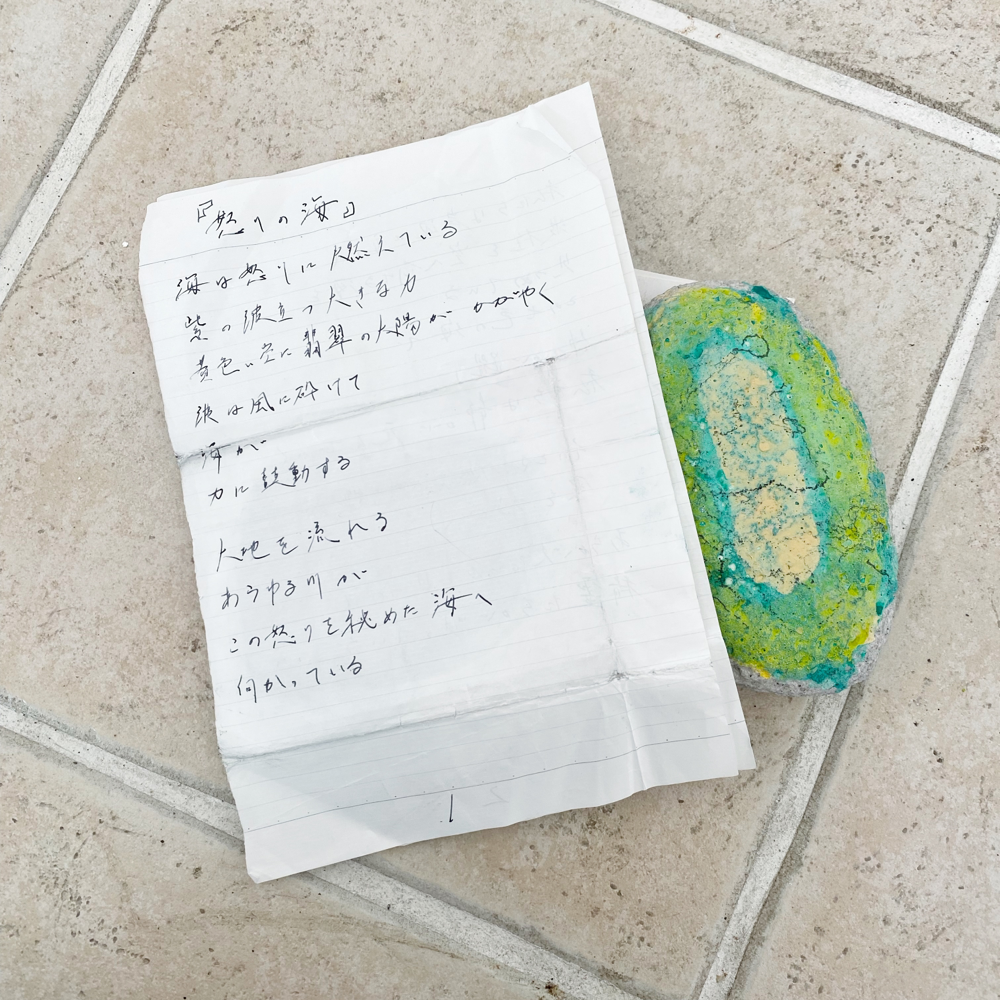 『怒りの海』
海は怒りに燃えている
紫の波立つ大きな力
黄色い空に翡翠の太陽がかがやく
波は風に砕けて
海が
力に鼓動する
大地を流れる
あらゆる川が
この怒りを秘めた海へ
向かっている
1